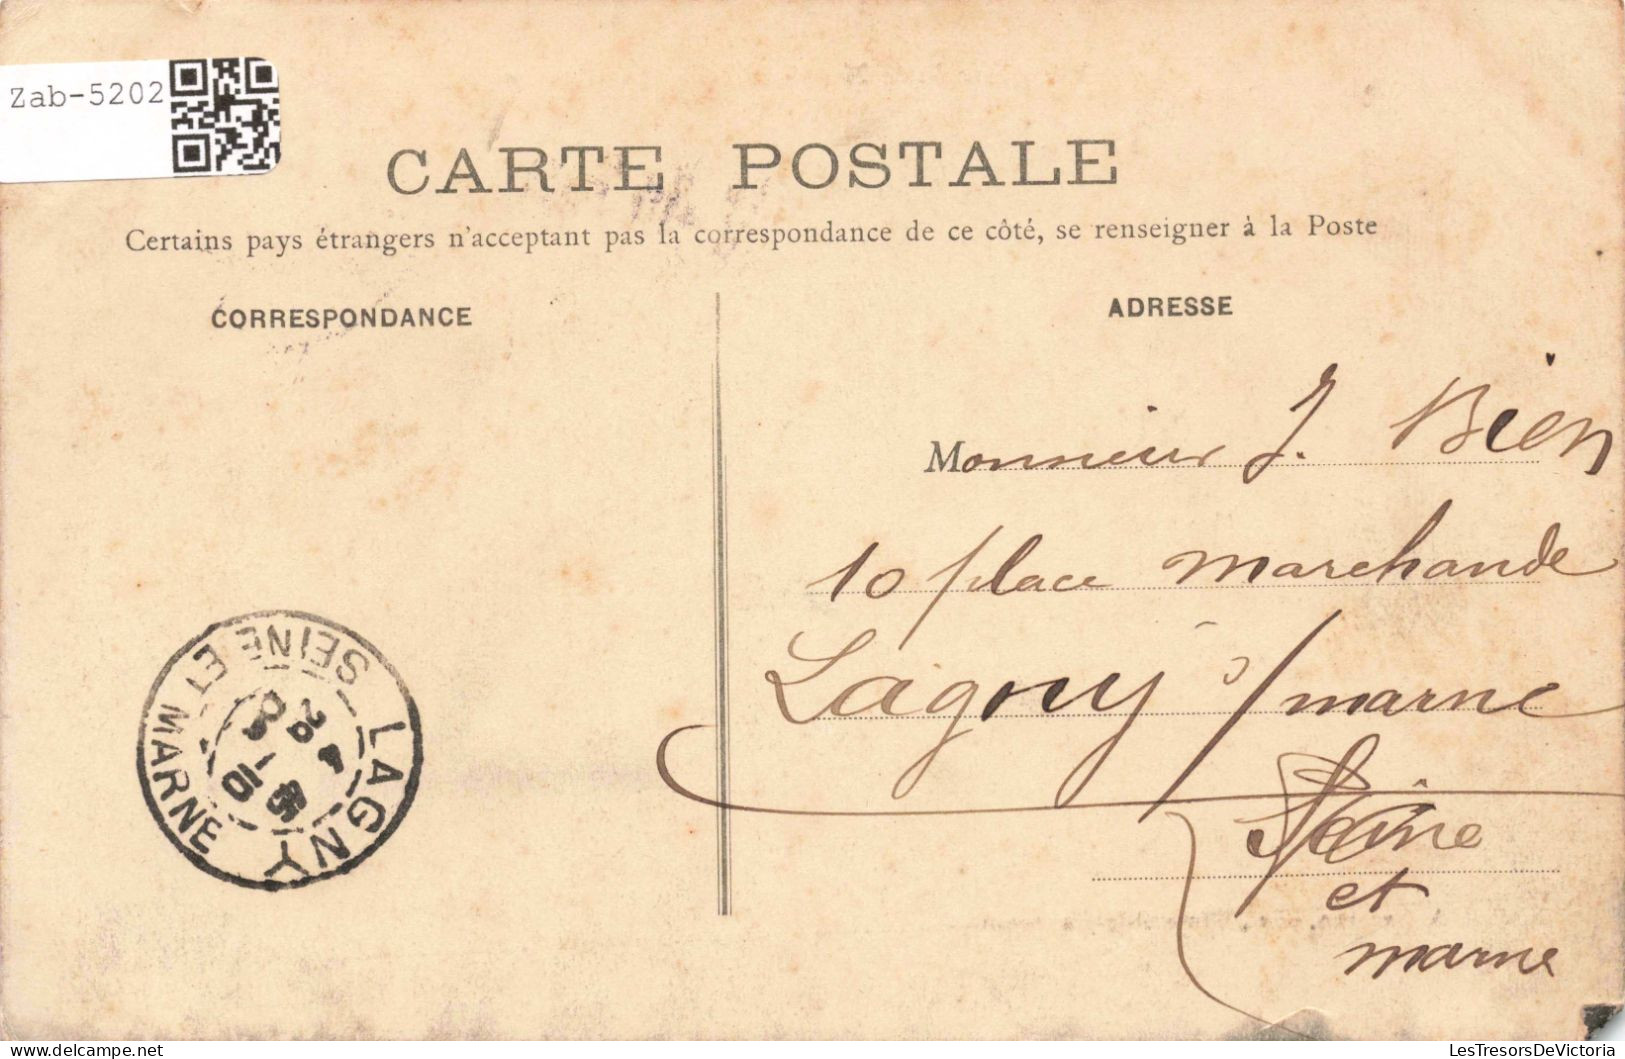 Zab-5202
CARTE POSTALE
Certains pays étrangers n'acceptant pas la correspondance de ce côté, se renseigner à la Poste
CORRESPONDANCE
ADRESSE
Monsieur J. Bien
10 place marchande
Lagny s/ marne
Seine
et
marne
LAGNY
SEINE ET MARNE
LesTresorsDeVictoria